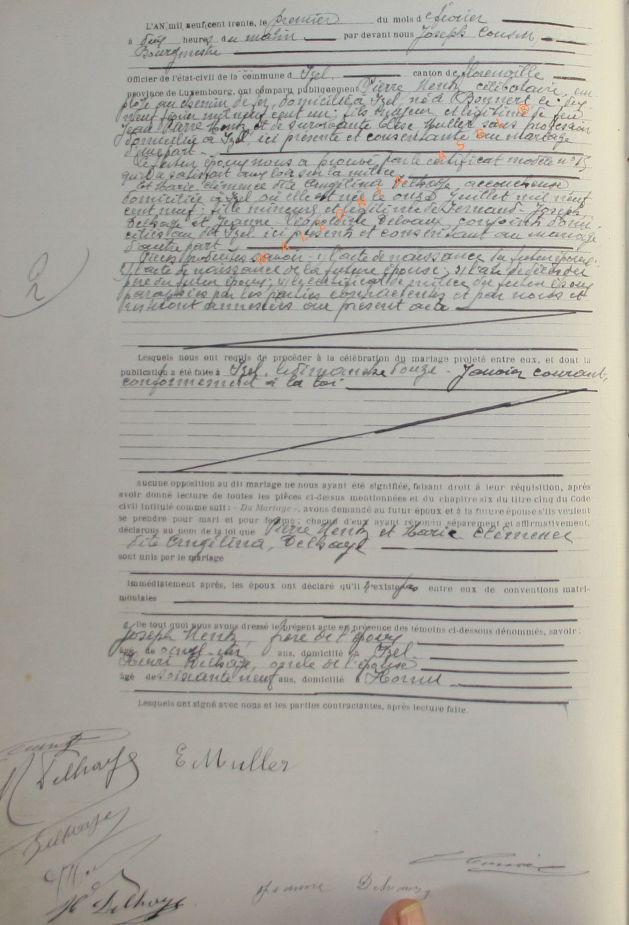 L'AN mil neuf cent trente, le premier du mois de février
à dix heures du matin par devant nous Joseph
Bourgmestre
Officier de l'état-civil de la commune d' Izel, canton de Florenville
province de Luxembourg, ont comparu publiquement Pierre Hentz célibataire, em
ployé au chemin de fer, domicilié à Izel né à Bonnert
neuf mil neuf cent un; fils majeur et légitime de feu
Jean Pierre Hentz et de survivante Muller sans profession
domiciliée à Izel, ici présente et consentante au mariage
d'une part.
Le futur époux nous a prouvé par le certificat modèle n° 15
qu'il a satisfait aux lois sur la milice
Et Marie Clémence dite Angélina Delhaye, accoucheuse
domiciliée à Izel où elle est née le onze juillet mil neuf
cent neuf; fille mineure et légitime de Fernand Joseph
Delhaye et Jeanne Léopoldine conjoints domi
ciliés au dit Izel ici présents et consentant au mariage
d'autre part
Pièces produites savoir: 1) l'acte de naissance du futur époux;
2) l'acte de naissance de la future épouse; 3) l'acte de décès du
père du futur époux; 4) le certificat de milice du futur époux
paraphées par les parties contractantes et par nous et
resteront annexées au présent acte
Lesquels nous ont requis de procéder à la célébration du mariage projeté entre eux, et dont la
publication a été faite à Izel, le dimanche douze Janvier courant,
conformément à la loi
Aucune opposition au dit mariage ne nous ayant été signifiée, faisant droit à leur réquisition, après
avoir donné lecture de toutes les pièces ci-dessus mentionnées et du chapitre six du titre cinq du Code
civil intitulé comme suit: « Du Mariage », avons demandé au futur époux et à la future épouse s'ils veulent
se prendre pour mari et pour femme; chacun d'eux ayant répondu séparément et affirmativement,
déclarons au nom de la loi que Pierre Hentz et Marie Clémence
dite Angélina, Delhaye
sont unis par le mariage
Immédiatement après, les époux ont déclaré qu'il n'existe pas entre eux de conventions matri-
moniales
De tout quoi nous avons dressé le présent acte en présence des témoins ci-dessous dénommés, savoir:
Joseph Hentz, frère de l'époux
âgé de ans, domicilié à Izel
Henri Delhaye, oncle de l'épouse
âgé de soixante neuf ans, domicilié
Lesquels ont signé avec nous et les parties contractantes, après lecture faite.
2
Delhaye E Muller
Delhaye
Delhaye Jeanne